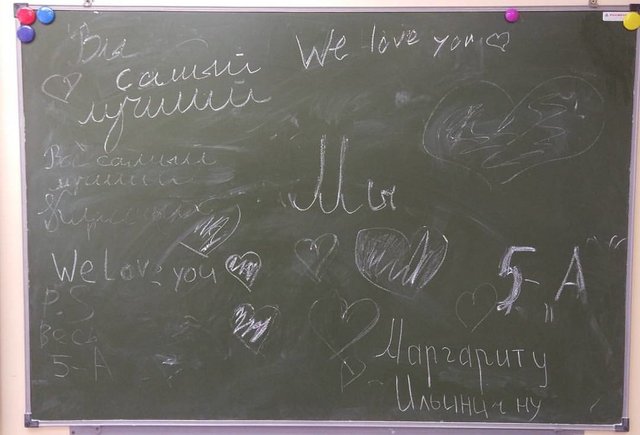 Вы
самый
лучший
We love you
Вы самый
лучший
Мы
We Love you
P.S
Весь
5-А
5-"А"
Маргариту
Ильиничну